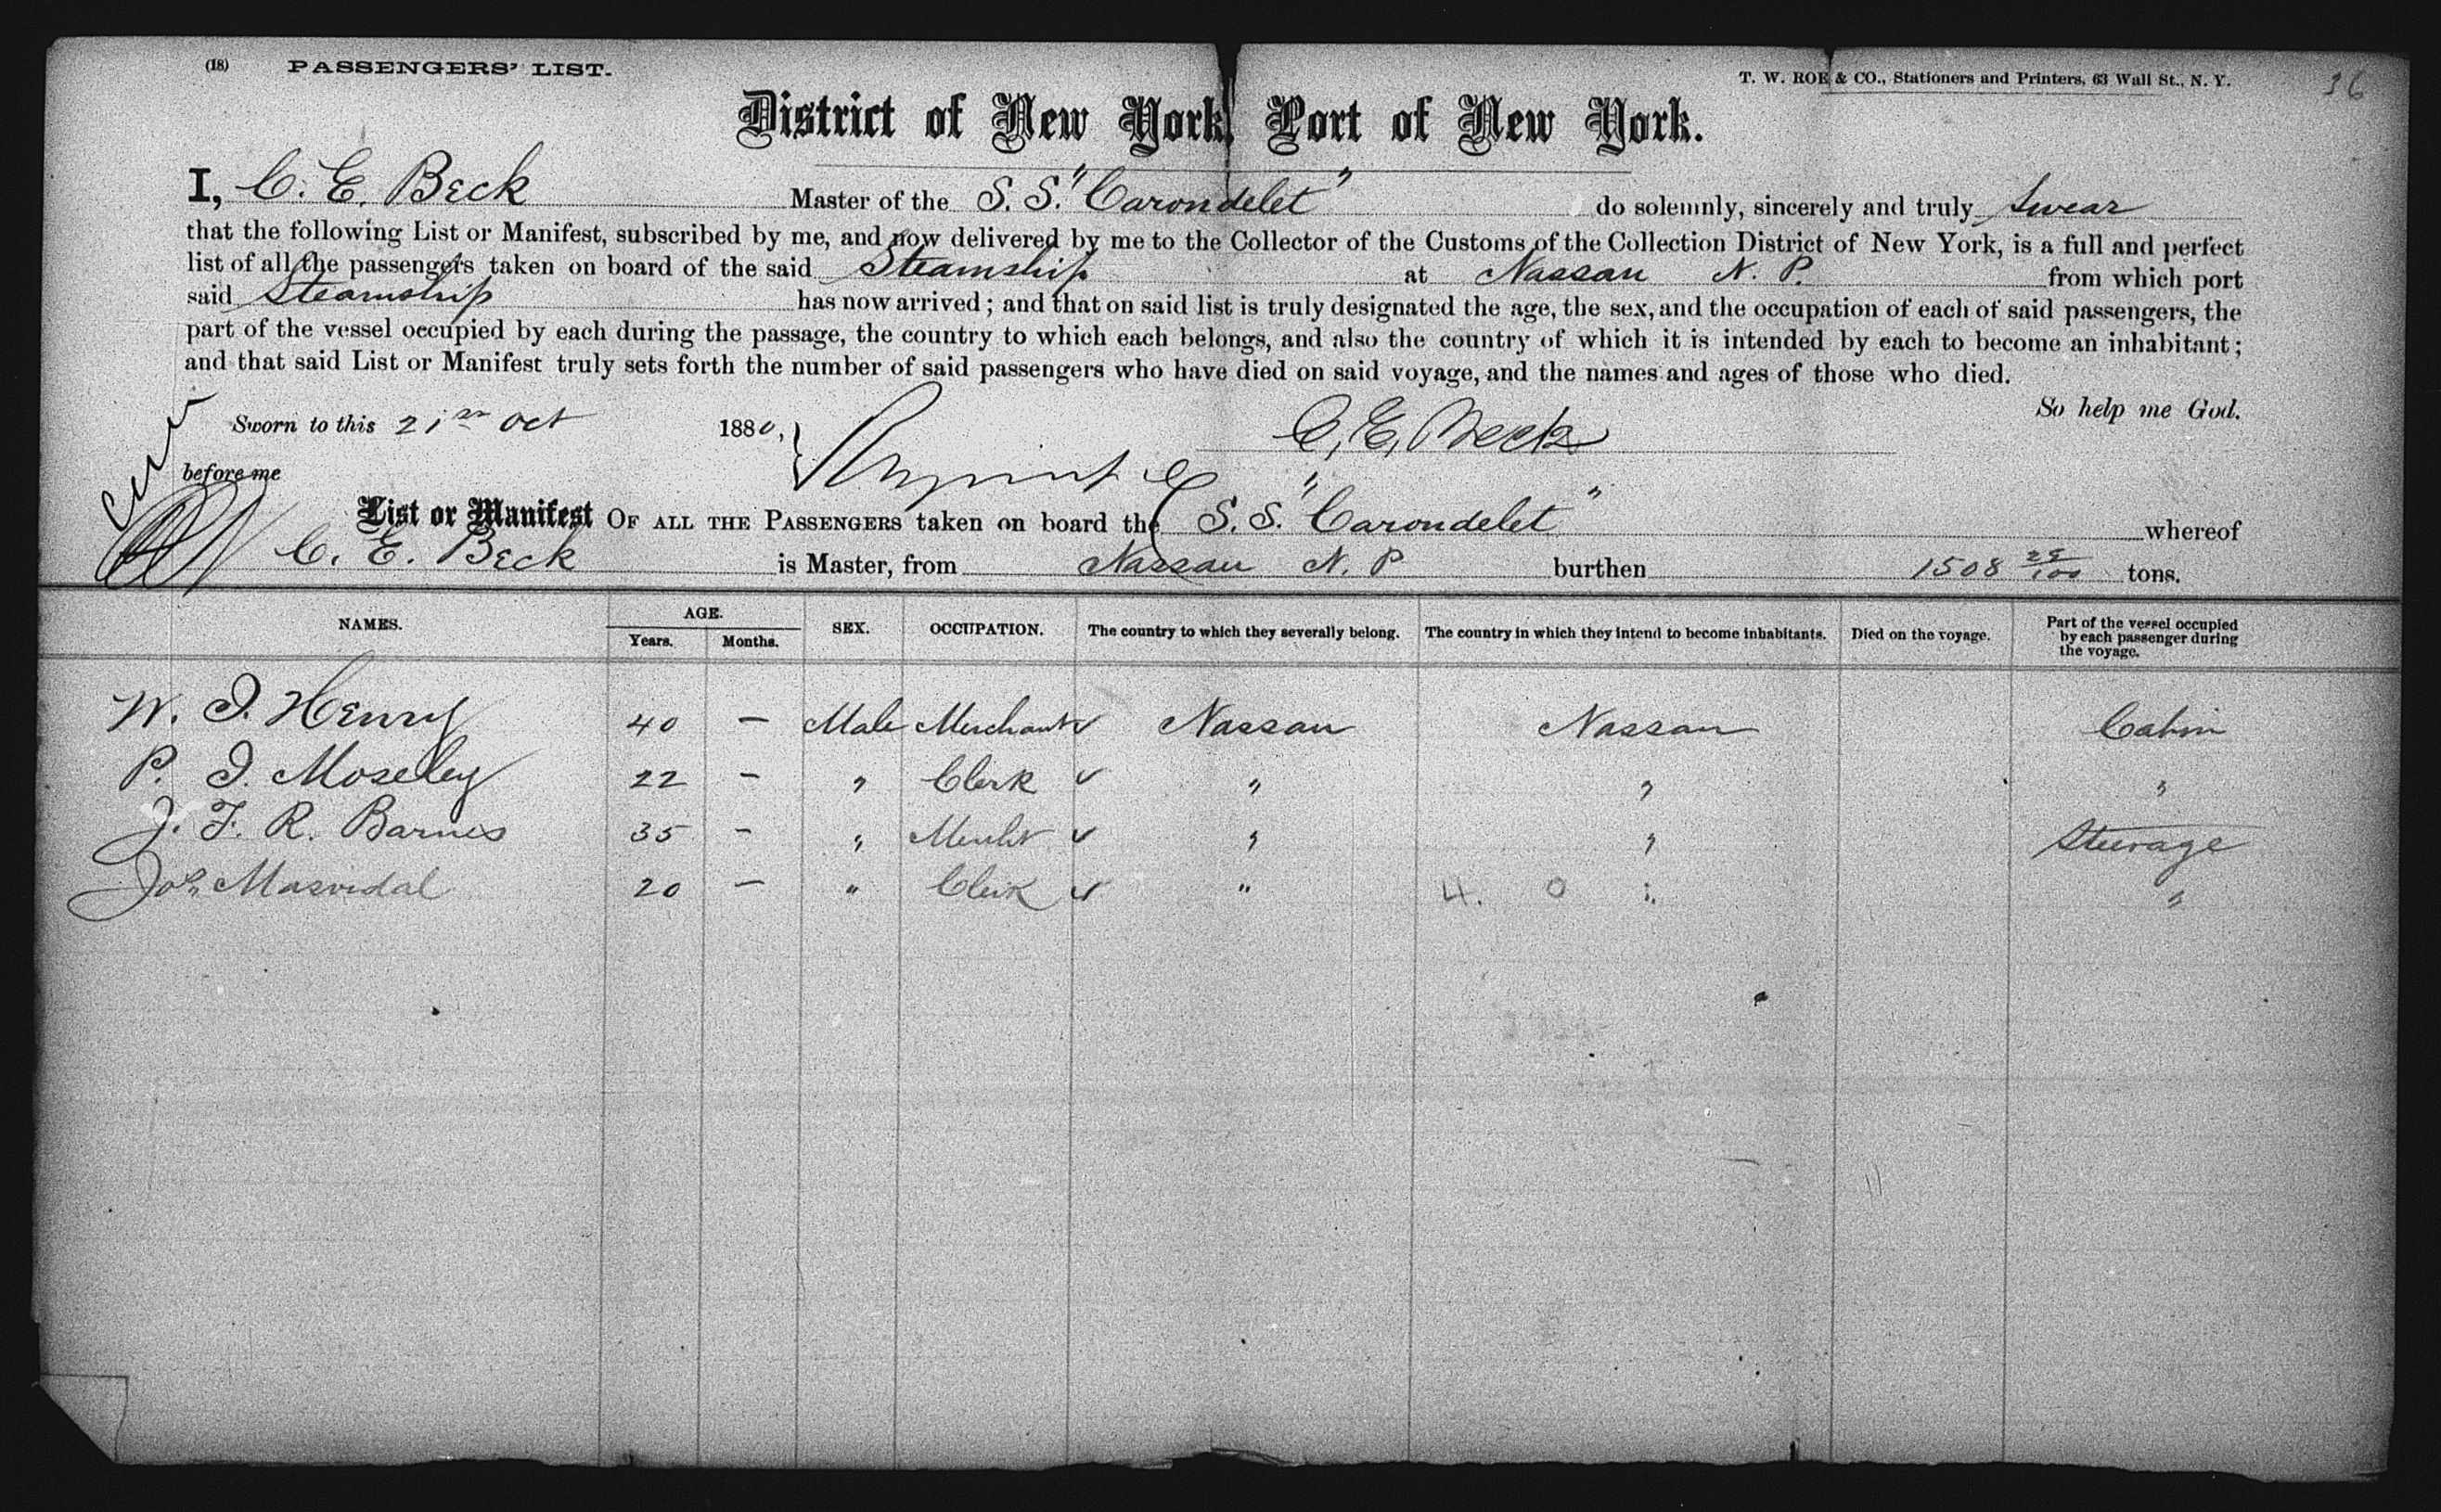 (18) PASSENGERS' LIST.
T. W. ROE & CO., Stationers and Printers, 63 Wall St., N. Y.
36
District of New York, Port of New York.
I, C. E. Beck Master of the S. S. "Carondelet" do solemnly, sincerely and truly swear
that the following List or Manifest, subscribed by me, and now delivered by me to the Collector of the Customs of the Collection District of New York, is a full and perfect
list of all the passengers taken on board of the said Steamship at Nassau N. P. from which port
said Steamship has now arrived; and that on said list is truly designated the age, the sex, and the occupation of each of said passengers, the
part of the vessel occupied by each during the passage, the country to which each belongs, and also the country of which it is intended by each to become an inhabitant;
and that said List or Manifest truly sets forth the number of said passengers who have died on said voyage, and the names and ages of those who died.
So help me God.
Sworn to this 21st Oct 1880,
C. E. Beck
before me
List or Manifest OF ALL THE PASSENGERS taken on board the S. S. "Carondelet" whereof
C. E. Beck is Master, from Nassau N. P burthen 1508 28/100 tons.
NAMES. AGE. Years. Months. SEX. OCCUPATION. The country to which they severally belong. The country in which they intend to become inhabitants. Died on the voyage. Part of the vessel occupied by each passenger during the voyage.
W. J. Henry 40 — Male Merchant ✓ Nassau Nassau Cabin
P. J. Moseley 22 — " Clerk ✓ " " "
J. F. R. Barnes 35 — " Mercht ✓ " " Steerage
Jos. Masvidal 20 — " Clerk ✓ " 4. 0 " "